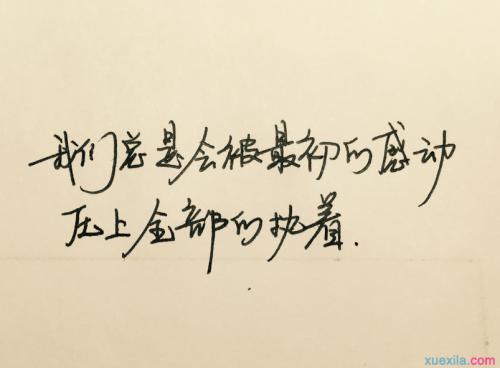 我们总是会被最初的感动
压上全部的执着.
xuexila.com